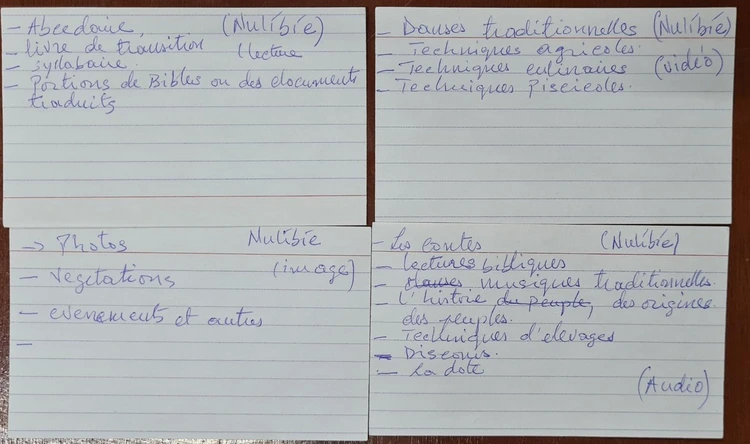 - Abecedaire, (Nulibie)
- livre de transition (lecture
- Syllabaire.
- Portions de Bibles ou des documents
traduits
- Danses traditionnelles (Nulibie)
- Techniques agricoles.
- Techniques culinaires (vidéo)
- Techniques Piscicoles.
→ Photos Nulibie
- vegetations (image)
- evenements et autres
-
- Les contes (Nulibie)
- lectures bibliques
- danses musiques traditionnelles.
- L'histoire du peuple, des origines
des peuples.
- Techniques d'elevages
- Discours.
- La dote
(Audio)